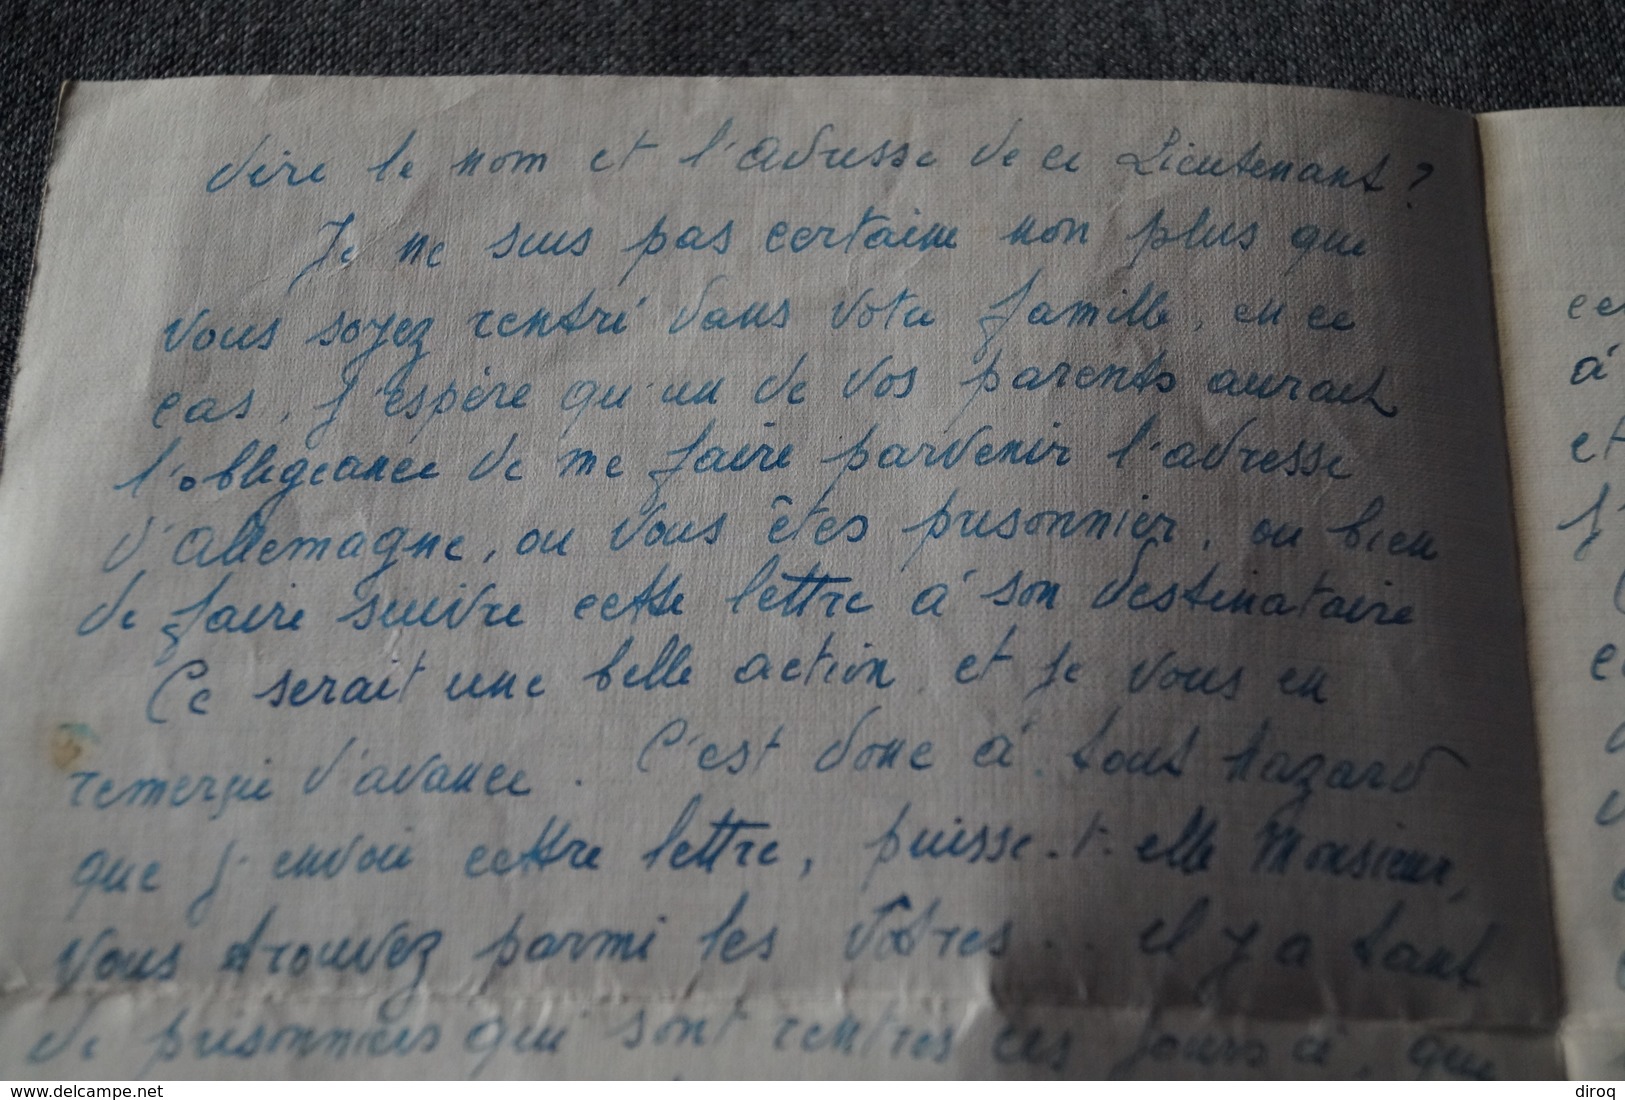 dire le nom et l'adresse de ce Lieutenant ?
Je ne suis pas certaine non plus que
vous soyez rentré dans votre famille, en ce
cas, j'espère qu'un de vos parents aurait
l'obligeance de me faire parvenir l'adresse
d'Allemagne, ou vous êtes prisonnier, ou bien
de faire suivre cette lettre à son destinataire
Ce serait une belle action et je vous en
remercie d'avance. C'est donc à tout hazard
que j'envoie cette lettre, puisse-t-elle Monsieur,
vous trouvez parmi les vôtres... il y a tant
de prisonniers qui sont rentrés ces jours ci, que
à
et
j'
diroq